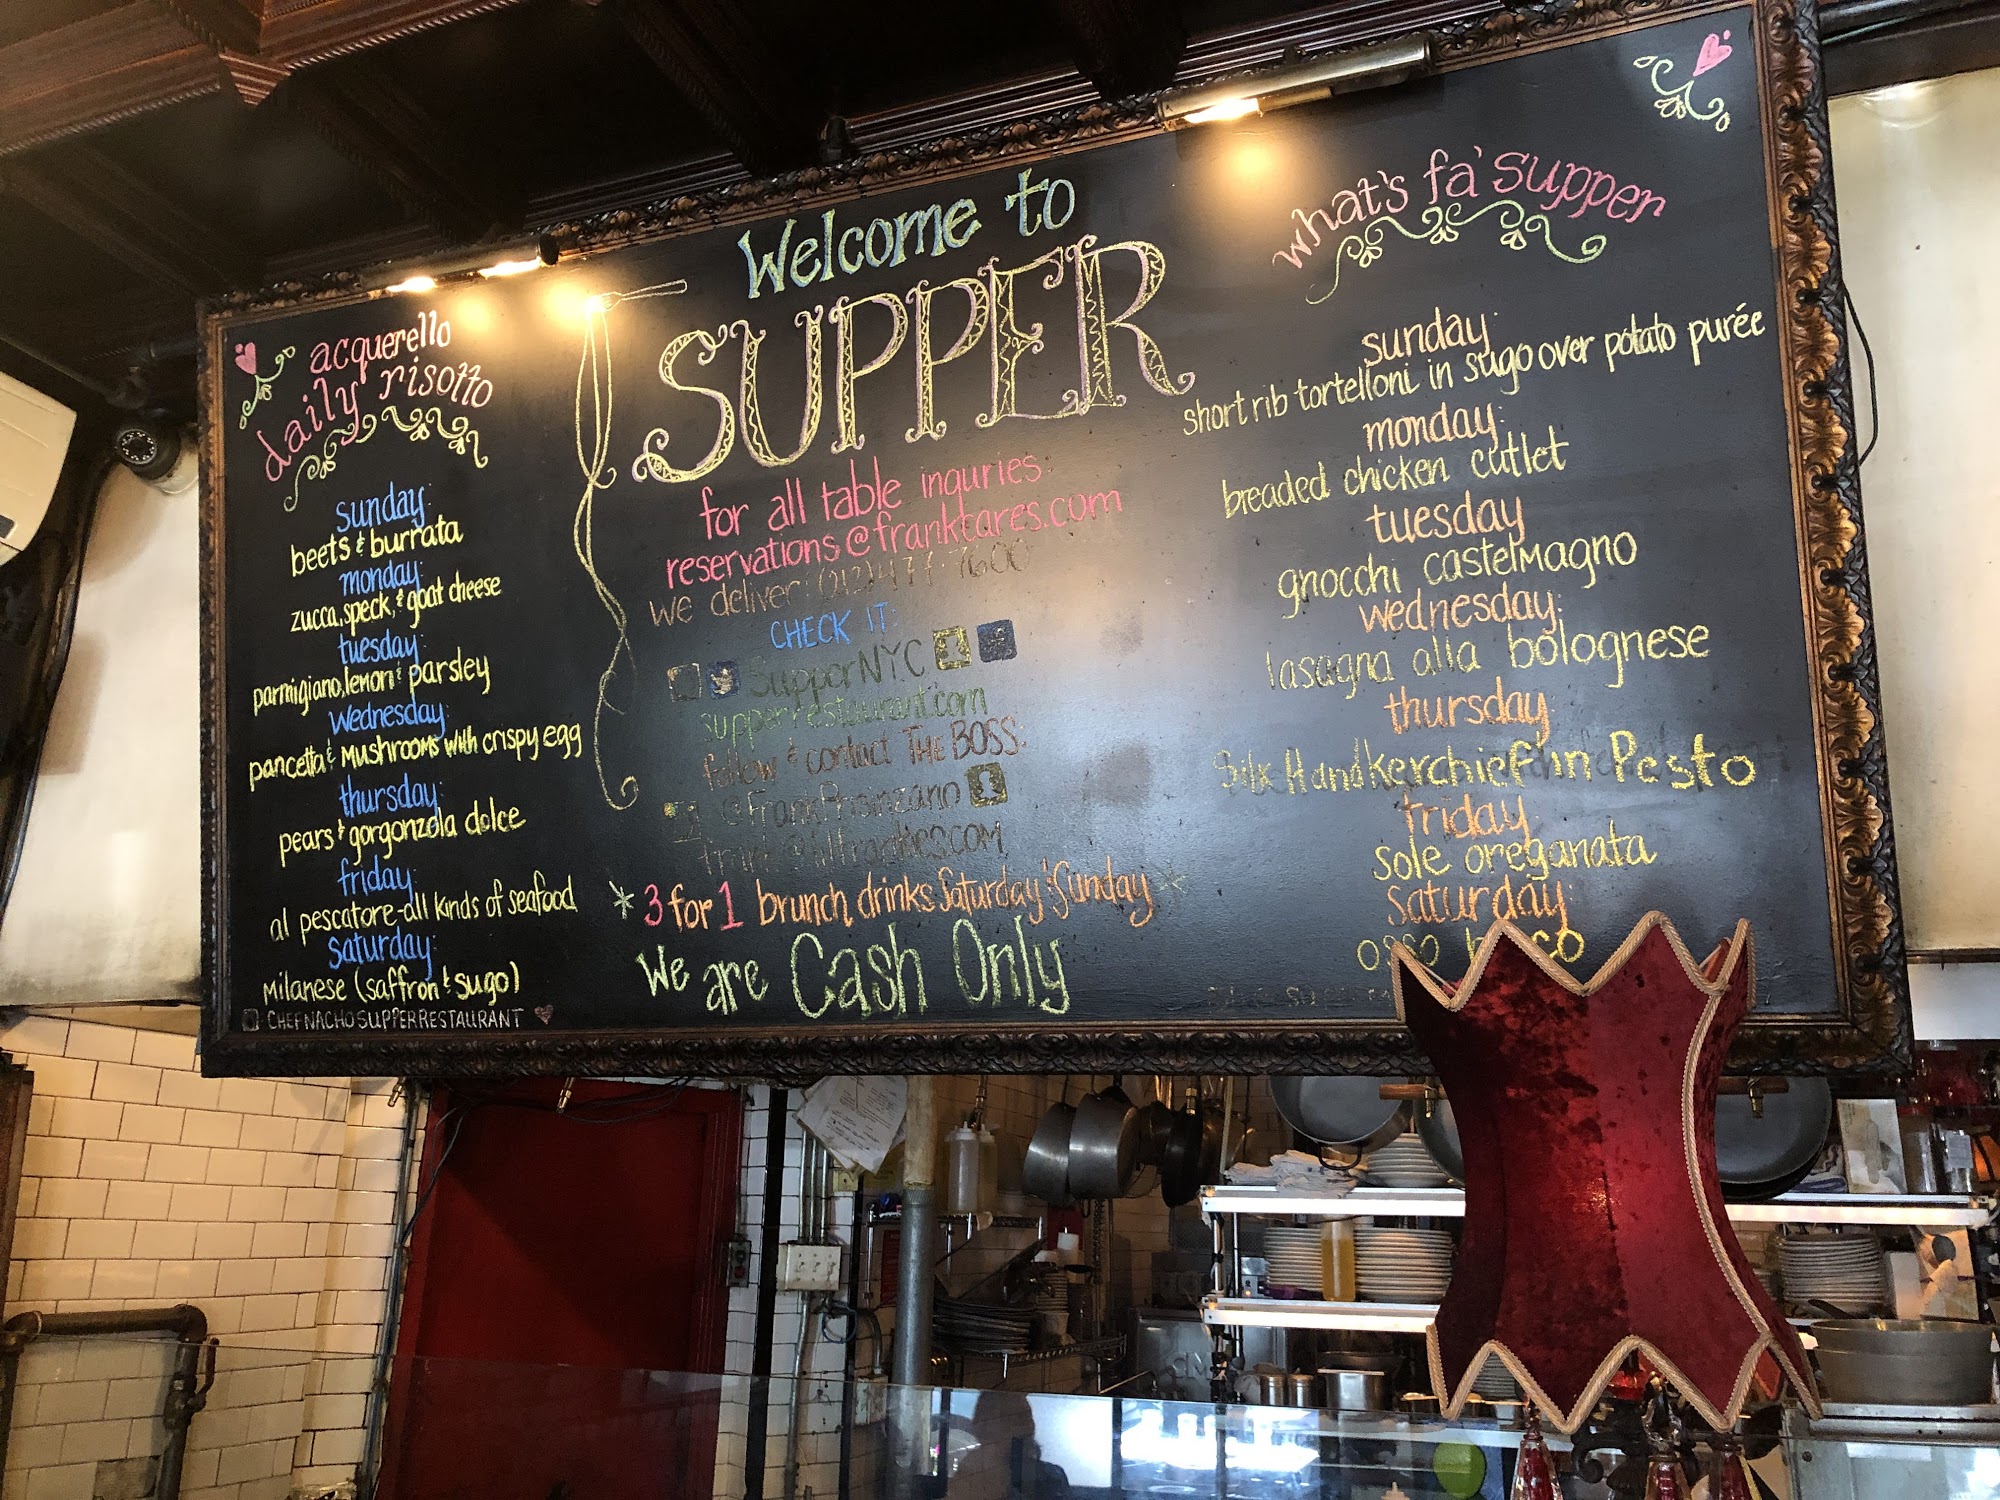 acquerello
daily risotto
sunday:
beets & burrata
monday:
zucca, speck, & goat cheese
tuesday:
parmigiano, lemon & parsley
wednesday:
pancetta & mushrooms with crispy egg
thursday:
pears & gorgonzola dolce
friday:
al pescatore-all kinds of seafood
saturday:
milanese (saffron & sugo)
CHEFNACHOSUPPERRESTAURANT
Welcome to
SUPPER
for all table inquries:
reservations@frankcares.com
we deliver! (212) 477-7600
CHECK IT:
SupperNYC
supperrestaurant.com
follow & contact THE BOSS:
@FrankPrisinzano
*3 for 1 brunch drinks Saturday & Sunday*
We are Cash Only
what's fa' supper
sunday:
short rib tortelloni in sugo over potato purée
monday:
breaded chicken cutlet
tuesday
gnocchi castelmagno
wednesday:
lasagna alla bolognese
thursday:
Silk Handkerchief in Pesto
friday:
sole oreganata
saturday:
osso